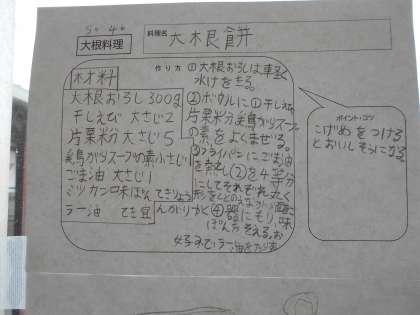 5.4.
大根料理
料理名 大根餅
材料
大根おろし300g
干しえび 大さじ2
片栗粉 大さじ5
鶏がらスープの素 小さじ1
ごま油 大さじ1
ミツカン味ぽん てきりょう
ラー油 てき宜
作り方 ①大根おろしは軽く
水けをきる。
②ボウルに①干しえび、
片栗粉、鶏がらスープ
の素をよくまぜる。
③フライパンにごま油
を熱し②を4等分
にしてそれぞれ丸く
形をととのえ
④器にもり、味
ぽんをそえる。お
好みでラー油をたらす
ポイント・コツ
こげめをつける
とおいしそうになる。